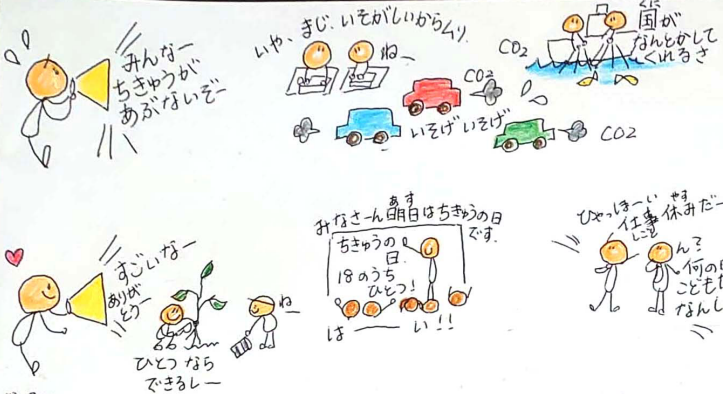 みんなー
ちきゅうが
あぶないぞー
いや、まじ、いそがしいからムリ.
ねー
CO2
いそげいそげ
CO2
CO2
くに
国が
なんとかして
くれるさ
すごいなー
ありが
とうー
ねー
ひとつ なら
できるしー
あす
みなさーん 明日はちきゅうの日
です.
ちきゅうの
日.
18のうち
ひとつ!
はーーい!!
ひゃっほーい
仕事 休みだー
しごと やす
ん?
何の
こども
なんし